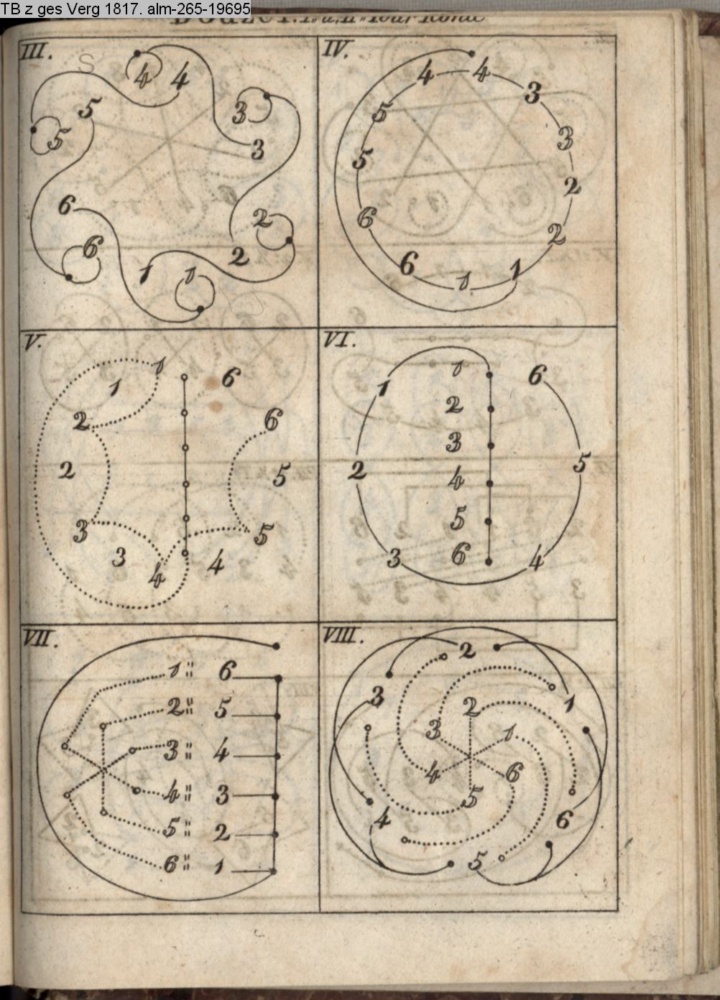 TB z ges Verg 1817. alm-265-19695
III.
4 4
5 3
5 3
6 2
6 1 1 2
IV.
4 4
5 3
5 3
6 2
6 1 1 2
V.
1 6
1
2 6
2 5
3 5
3 4 4
VI.
1 6
1 2
2 3 5
4
5
3 6 4
VII.
1 6
2 5
3 4
4 3
5 2
6 1
VIII.
2
3 2 1
3 1
4 6
4 5 6
5